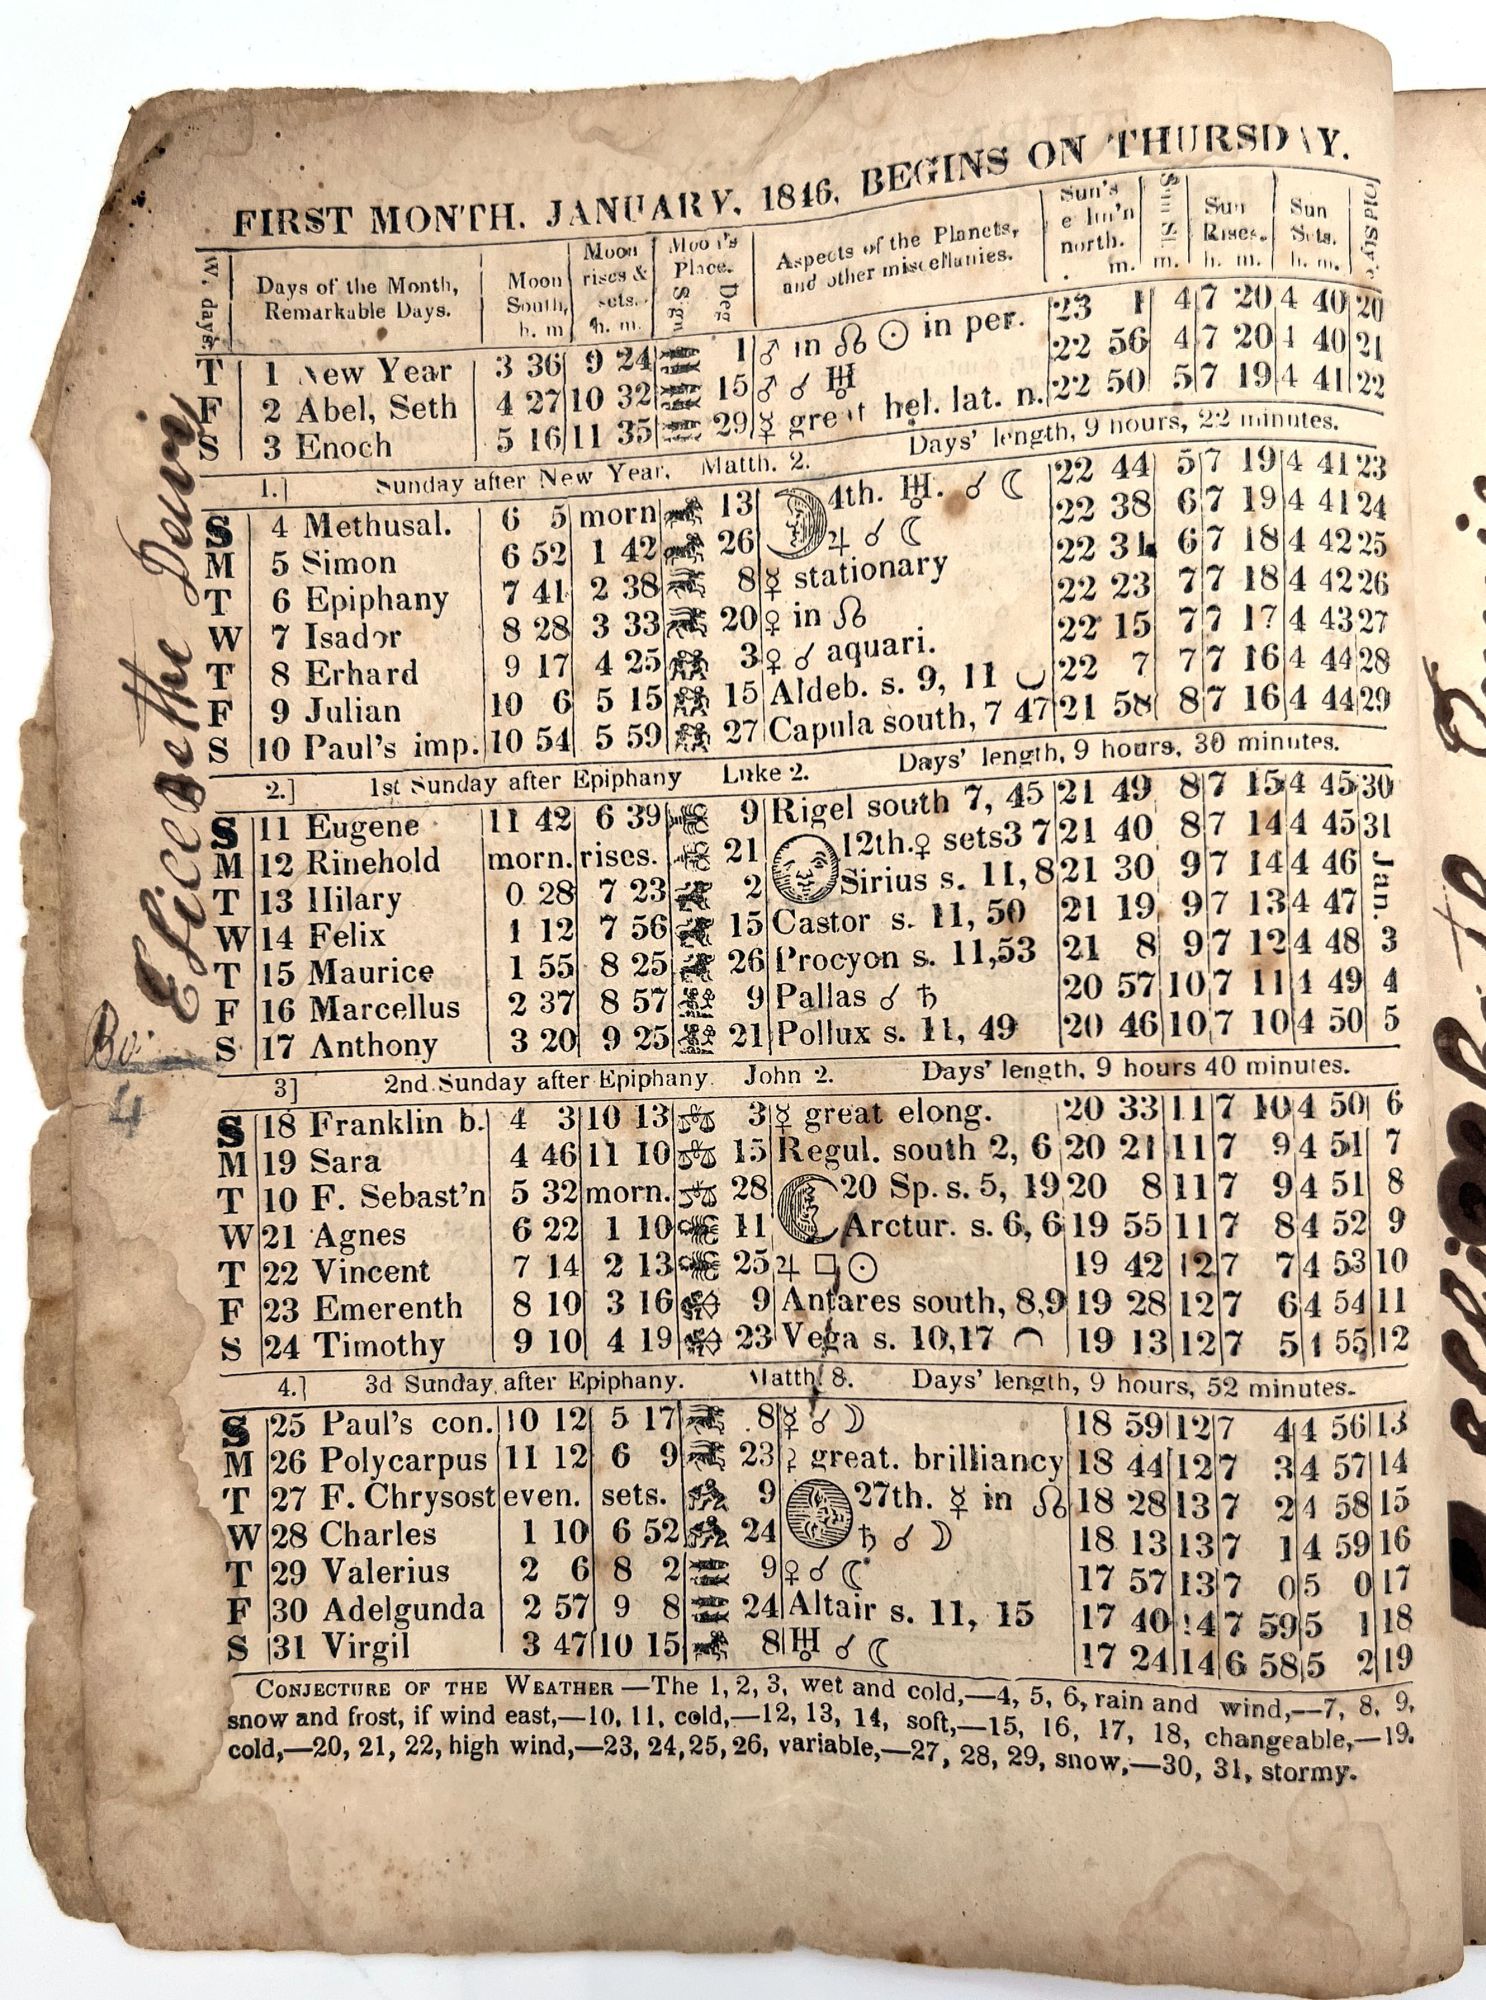 FIRST MONTH. JANUARY, 1846, BEGINS ON THURSDAY.
W. days Days of the Month, Remarkable Days. Moon South, h. m Moon rises & sets. h. m. Moon's Place. Sign Deg Aspects of the Planets, and other miscellanies. Sun's north. m. Sun Sl. m. Sun Rises. h. m. Sun Sets. h. m. Old Style
T 1 New Year 3 36 9 24 1 ♂ in ☊ ☉ in per. 23 1 4 7 20 4 40 20
F 2 Abel, Seth 4 27 10 32 15 ♂ ☌ ♅ 22 56 4 7 20 4 40 21
S 3 Enoch 5 16 11 35 29 ☿ great hel. lat. n. 22 50 5 7 19 4 41 22
1.] Sunday after New Year, Matth. 2. Days' length, 9 hours, 22 minutes.
S 4 Methusal. 6 5 morn 13 4th. ♅. ☌ ☾ 22 44 5 7 19 4 41 23
M 5 Simon 6 52 1 42 26 ♃ ☌ ☾ 22 38 6 7 19 4 41 24
T 6 Epiphany 7 41 2 38 8 ☿ stationary 22 31 6 7 18 4 42 25
W 7 Isador 8 28 3 33 20 ♀ in ☊ 22 23 7 7 18 4 42 26
T 8 Erhard 9 17 4 25 3 ♀ ☌ aquari. 22 15 7 7 17 4 43 27
F 9 Julian 10 6 5 15 15 Aldeb. s. 9, 11 22 7 7 7 16 4 44 28
S 10 Paul's imp. 10 54 5 59 27 Capula south, 7 47 21 58 8 7 16 4 44 29
2.] 1st Sunday after Epiphany Luke 2. Days' length, 9 hours, 30 minutes.
S 11 Eugene 11 42 6 39 9 Rigel south 7, 45 21 49 8 7 15 4 45 30
M 12 Rinehold morn. rises. 21 12th. ♀ sets 3 7 21 40 8 7 14 4 45 31
T 13 Hilary 0 28 7 23 2 Sirius s. 11, 8 21 30 9 7 14 4 46 Jan.
W 14 Felix 1 12 7 56 15 Castor s. 11, 50 21 19 9 7 13 4 47
T 15 Maurice 1 55 8 25 26 Procyon s. 11,53 21 8 9 7 12 4 48 3
F 16 Marcellus 2 37 8 57 9 Pallas ☌ ♄ 20 57 10 7 11 4 49 4
S 17 Anthony 3 20 9 25 21 Pollux s. 11, 49 20 46 10 7 10 4 50 5
3] 2nd. Sunday after Epiphany. John 2. Days' length, 9 hours 40 minutes.
S 18 Franklin b. 4 3 10 13 3 ☿ great elong. 20 33 11 7 10 4 50 6
M 19 Sara 4 46 11 10 15 Regul. south 2, 6 20 21 11 7 9 4 51 7
T 10 F. Sebast'n 5 32 morn. 28 20 Sp. s. 5, 19 20 8 11 7 9 4 51 8
W 21 Agnes 6 22 1 10 11 Arctur. s. 6, 6 19 55 11 7 8 4 52 9
T 22 Vincent 7 14 2 13 25 ♃ □ ☉ 19 42 12 7 7 4 53 10
F 23 Emerenth 8 10 3 16 9 Antares south, 8,9 19 28 12 7 6 4 54 11
S 24 Timothy 9 10 4 19 23 Vega s. 10,17 19 13 12 7 5 4 55 12
4.] 3d Sunday after Epiphany. Matth. 8. Days' length, 9 hours, 52 minutes.
S 25 Paul's con. 10 12 5 17 8 ☿ ☌ ☽ 18 59 12 7 4 4 56 13
M 26 Polycarpus 11 12 6 9 23 great. brilliancy 18 44 12 7 3 4 57 14
T 27 F. Chrysost even. sets. 9 27th. ☿ in ☊ 18 28 13 7 2 4 58 15
W 28 Charles 1 10 6 52 24 ♄ ☌ ☽ 18 13 13 7 1 4 59 16
T 29 Valerius 2 6 8 2 9 ♀ ☌ ☾ 17 57 13 7 0 5 0 17
F 30 Adelgunda 2 57 9 8 24 Altair s. 11, 15 17 40 14 7 59 5 1 18
S 31 Virgil 3 47 10 15 8 ♅ ☌ ☾ 17 24 14 6 58 5 2 19
CONJECTURE OF THE WEATHER —The 1, 2, 3, wet and cold,—4, 5, 6, rain and wind,—7, 8, 9,
snow and frost, if wind east,—10, 11, cold,—12, 13, 14, soft,—15, 16, 17, 18, changeable,—19.
cold,—20, 21, 22, high wind,—23, 24, 25, 26, variable,—27, 28, 29, snow,—30, 31, stormy.
4